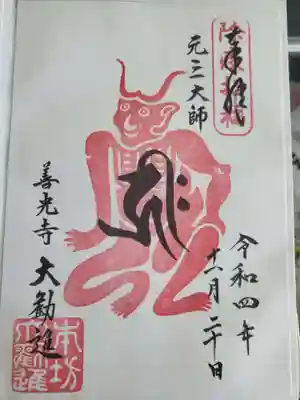 奉拝
元三大師
令和四年
十一月二十日
善光寺 大勧進
本坊
大勧進